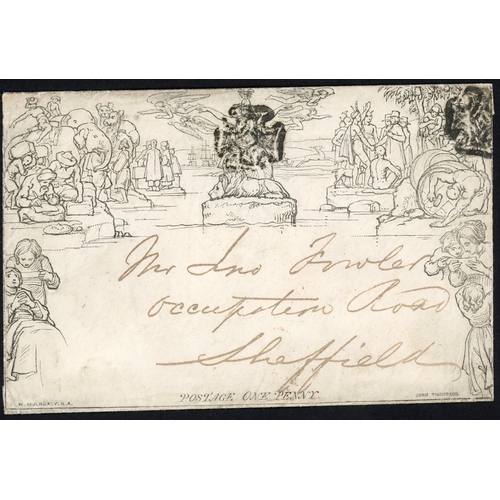 Mr Jno Fowler
Occupation Road
Sheffield
POSTAGE ONE PENNY.
W. MULREADY, R.A.
JOHN THOMPSON